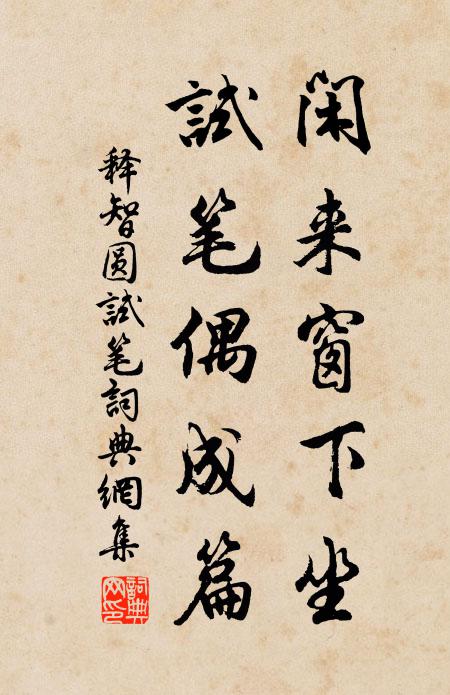 閑来窗下坐
試笔偶成篇
释智圆試笔詞典網集
詞典网印